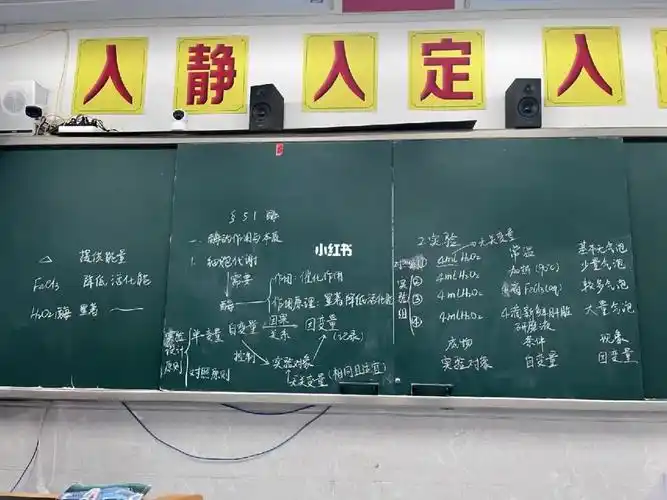 入静入定入
小红书
△ 提供能量
FeCl₃ 降低活化能
H₂O₂酶 显著 ——
§5.1 酶
一、酶的作用与本质
1. 细胞代谢
↓需要
酶
作用: 催化作用
作用原理: 显著降低活化能
实验设计原则
单一变量 自变量 因果关系 因变量
(记录)
控制
实验对象
对照原则
无关变量(相同且适宜)
2. 实验 无关变量
对照组 ① 4mL H₂O₂ 常温 基本无气泡
实验组 ② 4mL H₂O₂ 加热(90℃) 少量气泡
③ 4mL H₂O₂ FeCl₃(aq) 较多气泡
④ 4mL H₂O₂ 2滴新鲜肝脏研磨液 大量气泡
底物 条件 现象
实验对象 自变量 因变量